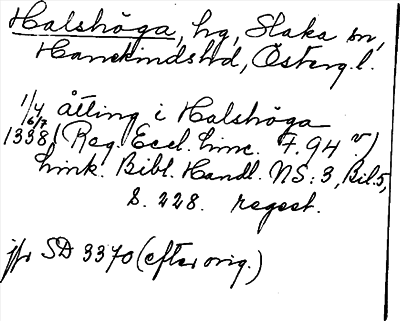 Halshöga, hg, Slaka sn,
Hanekindshd, Österg.l.
1/4 åtting i Halshöga
6/7
1338 (Reg. Eccl. Linc. F. 94 v)
Link. Bibl. Handl. NS: 3, Bil. 5,
S. 228. regest.
jfr SD 3370 (efter orig.)